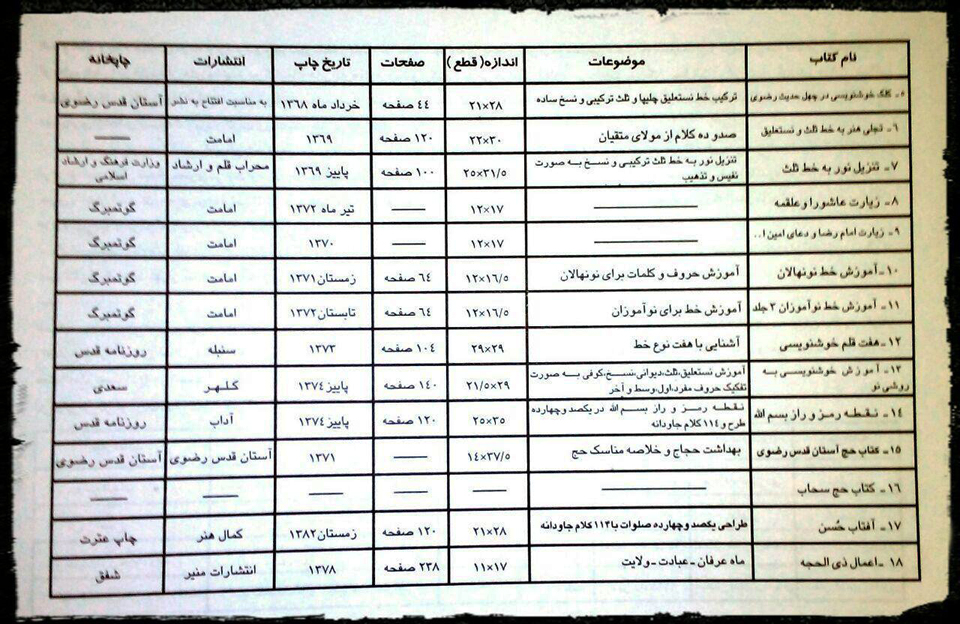 نام کتاب | موضوعات | اندازه(قطع) | صفحات | تاریخ چاپ | انتشارات | چاپخانه
۵- کلک خوشنویسی در چهل حدیث رضوی | ترکیب خط نستعلیق چلیپا و ثلث ترکیبی و نسخ ساده | ۲۱×۲۸ | ۴۴ صفحه | خرداد ماه ۱۳۶۸ | به مناسبت افتتاح به نشر | آستان قدس رضوی
۶- تجلی هنر به خط ثلث و نستعلیق | صدو ده کلام از مولای متقیان | ۲۲×۳۰ | ۱۲۰ صفحه | ۱۳۶۹ | امامت | ——
۷- تنزیل نور به خط ثلث | تنزیل نور به خط ثلث ترکیبی و نسخ به صورت | ۲۵×۳۱/۵ | ۱۰۰ صفحه | پاییز ۱۳۶۹ | محراب قلم و ارشاد | وزارت فرهنگ و ارشاد
نفیس و تذهیب | اسلامی
۸- زیارت عاشورا و علقمه | —— | ۱۲×۱۷ | —— | تیر ماه ۱۳۷۲ | امامت | گوتمبرگ
۹- زیارت امام رضا و دعای امین ا.. | —— | ۱۲×۱۷ | —— | ۱۳۷۰ | امامت | گوتمبرگ
۱۰-آموزش خط نونهالان | آموزش حروف و کلمات برای نونهالان | ۱۲×۱۶/۵ | ۶۴ صفحه | زمستان۱۳۷۱ | امامت | گوتمبرگ
۱۱- آموزش خط نوآموزان ۲جلد | آموزش خط برای نوآموزان | ۱۲×۱۶/۵ | ۶۴ صفحه | تابستان۱۳۷۲ | امامت | گوتمبرگ
۱۲-هفت قلم خوشنویسی | آشنایی با هفت نوع خط | ۲۹×۲۹ | ۱۰۴ صفحه | ۱۳۷۳ | سنبله | روزنامه قدس
۱۳- آموزش خوشنویسی به | آموزش نستعلیق،ثلث،دیوانی،نسخ،کوفی به صورت | ۲۱/۵×۲۹ | ۱۴۰ صفحه | پاییز۱۳۷۴ | گلهر | سعدی
روشی نو | تفکیک حروف مفرد،اول،وسط و آخر
۱۴- نقطه رمز و راز بسم الله | نقطه رمز و راز بسم الله در یکصد و چهارده | ۲۵×۳۵ | ۱۲۰ صفحه | پاییز۱۳۷۴ | آداب | روزنامه قدس
طرح و ۱۱۴ کلام جاودانه
۱۵- کتاب حج آستان قدس رضوی | بهداشت حجاج و خلاصه مناسک حج | ۱۴×۳۷/۵ | —— | ۱۳۷۱ | آستان قدس رضوی | آستان قدس رضوی
۱۶- کتاب حج سحاب | —— | —— | —— | —— | —— | ——
۱۷- آفتاب حُسن | طراحی یکصد و چهارده صلوات با ۱۱۴ کلام جاودانه | ۲۱×۲۸ | ۱۲۰ صفحه | زمستان۱۳۸۲ | کمال هنر | چاپ عترت
۱۸ -اعمال ذی الحجه | ماه عرفان - عبادت - ولایت | ۱۱×۱۷ | ۲۳۸ صفحه | ۱۳۷۸ | انتشارات منیر | شفق